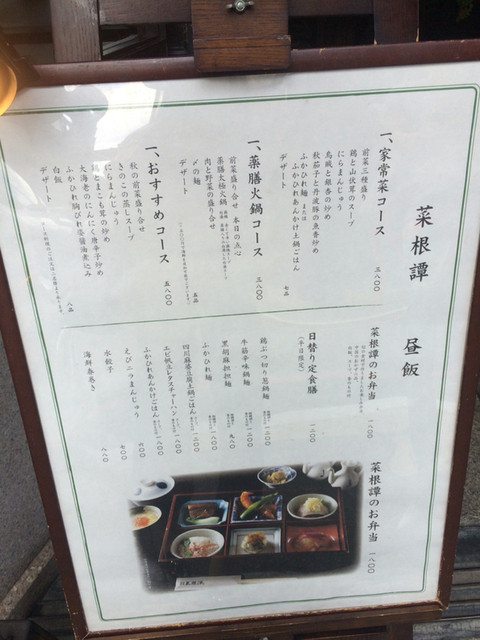 菜根譚
昼飯
一、家常菜コース 三八〇〇
前菜三種盛り
鶏と山伏茸のスープ
にらまんじゅう
烏賊と銀杏の炒め
秋茄子と丹波豚の魚香炒め
ふかひれ麺 または
ふかひれあんかけ土鍋ごはん
デザート
七品
一、薬膳火鍋コース 三八〇〇
前菜盛り合せ 本日の点心
薬膳太極火鍋
肉と野菜の盛り合せ
〆の麺
デザート
五品
一、おすすめコース 五八〇〇
秋の前菜盛り合せ
きのこの蒸しスープ
にらまんじゅう
鶏とまこも茸の炒め
大海老のにんにく唐辛子炒め
ふかひれ胸びれ醤油煮込み
白飯
デザート
八品
菜根譚のお弁当 一八〇〇
日替り定食膳 一二〇〇
(平日限定)
鶏ぶつ切り葱鍋麺 一二〇〇
牛筋辛味鍋麺 一二〇〇
黒胡麻担担麺 九八〇
ふかひれ麺 一八〇〇
四川麻婆豆腐土鍋ごはん 一二〇〇
エビ帆立レタスチャーハン 一一〇〇
ふかひれあんかけごはん 一八〇〇
えびニラまんじゅう 六〇〇
水餃子 七〇〇
海鮮春巻き 八八〇
菜根譚のお弁当 一八〇〇